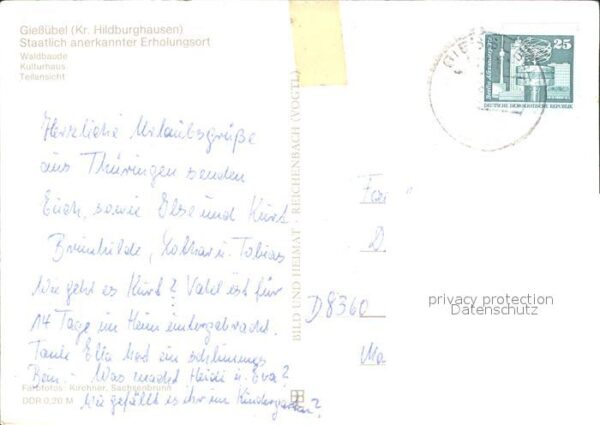 Gießübel (Kr. Hildburghausen)
Staatlich anerkannter Erholungsort
Waldbaude
Kulturhaus
Teilansicht
Herzliche Urlaubsgrüße
aus Thüringen senden
Euch, sowie Else und Kurt
Brünhilde, Lothar u. Tobias
Wie geht es Kurt? Vater ist für
14 Tage im Heim untergebracht.
Tante Ella hat ein schlimmes
Bein. – Was macht Heidi u. Eva?
Wie gefällt es ihr im Kindergarten?
Farbfotos: Kirchner, Sachsenbrunn
DDR 0,20 M
BILD UND HEIMAT · REICHENBACH (VOGTL)
25
DEUTSCHE DEMOKRATISCHE REPUBLIK
Fa
D.
D 8360
Ma
privacy protection
Datenschutz